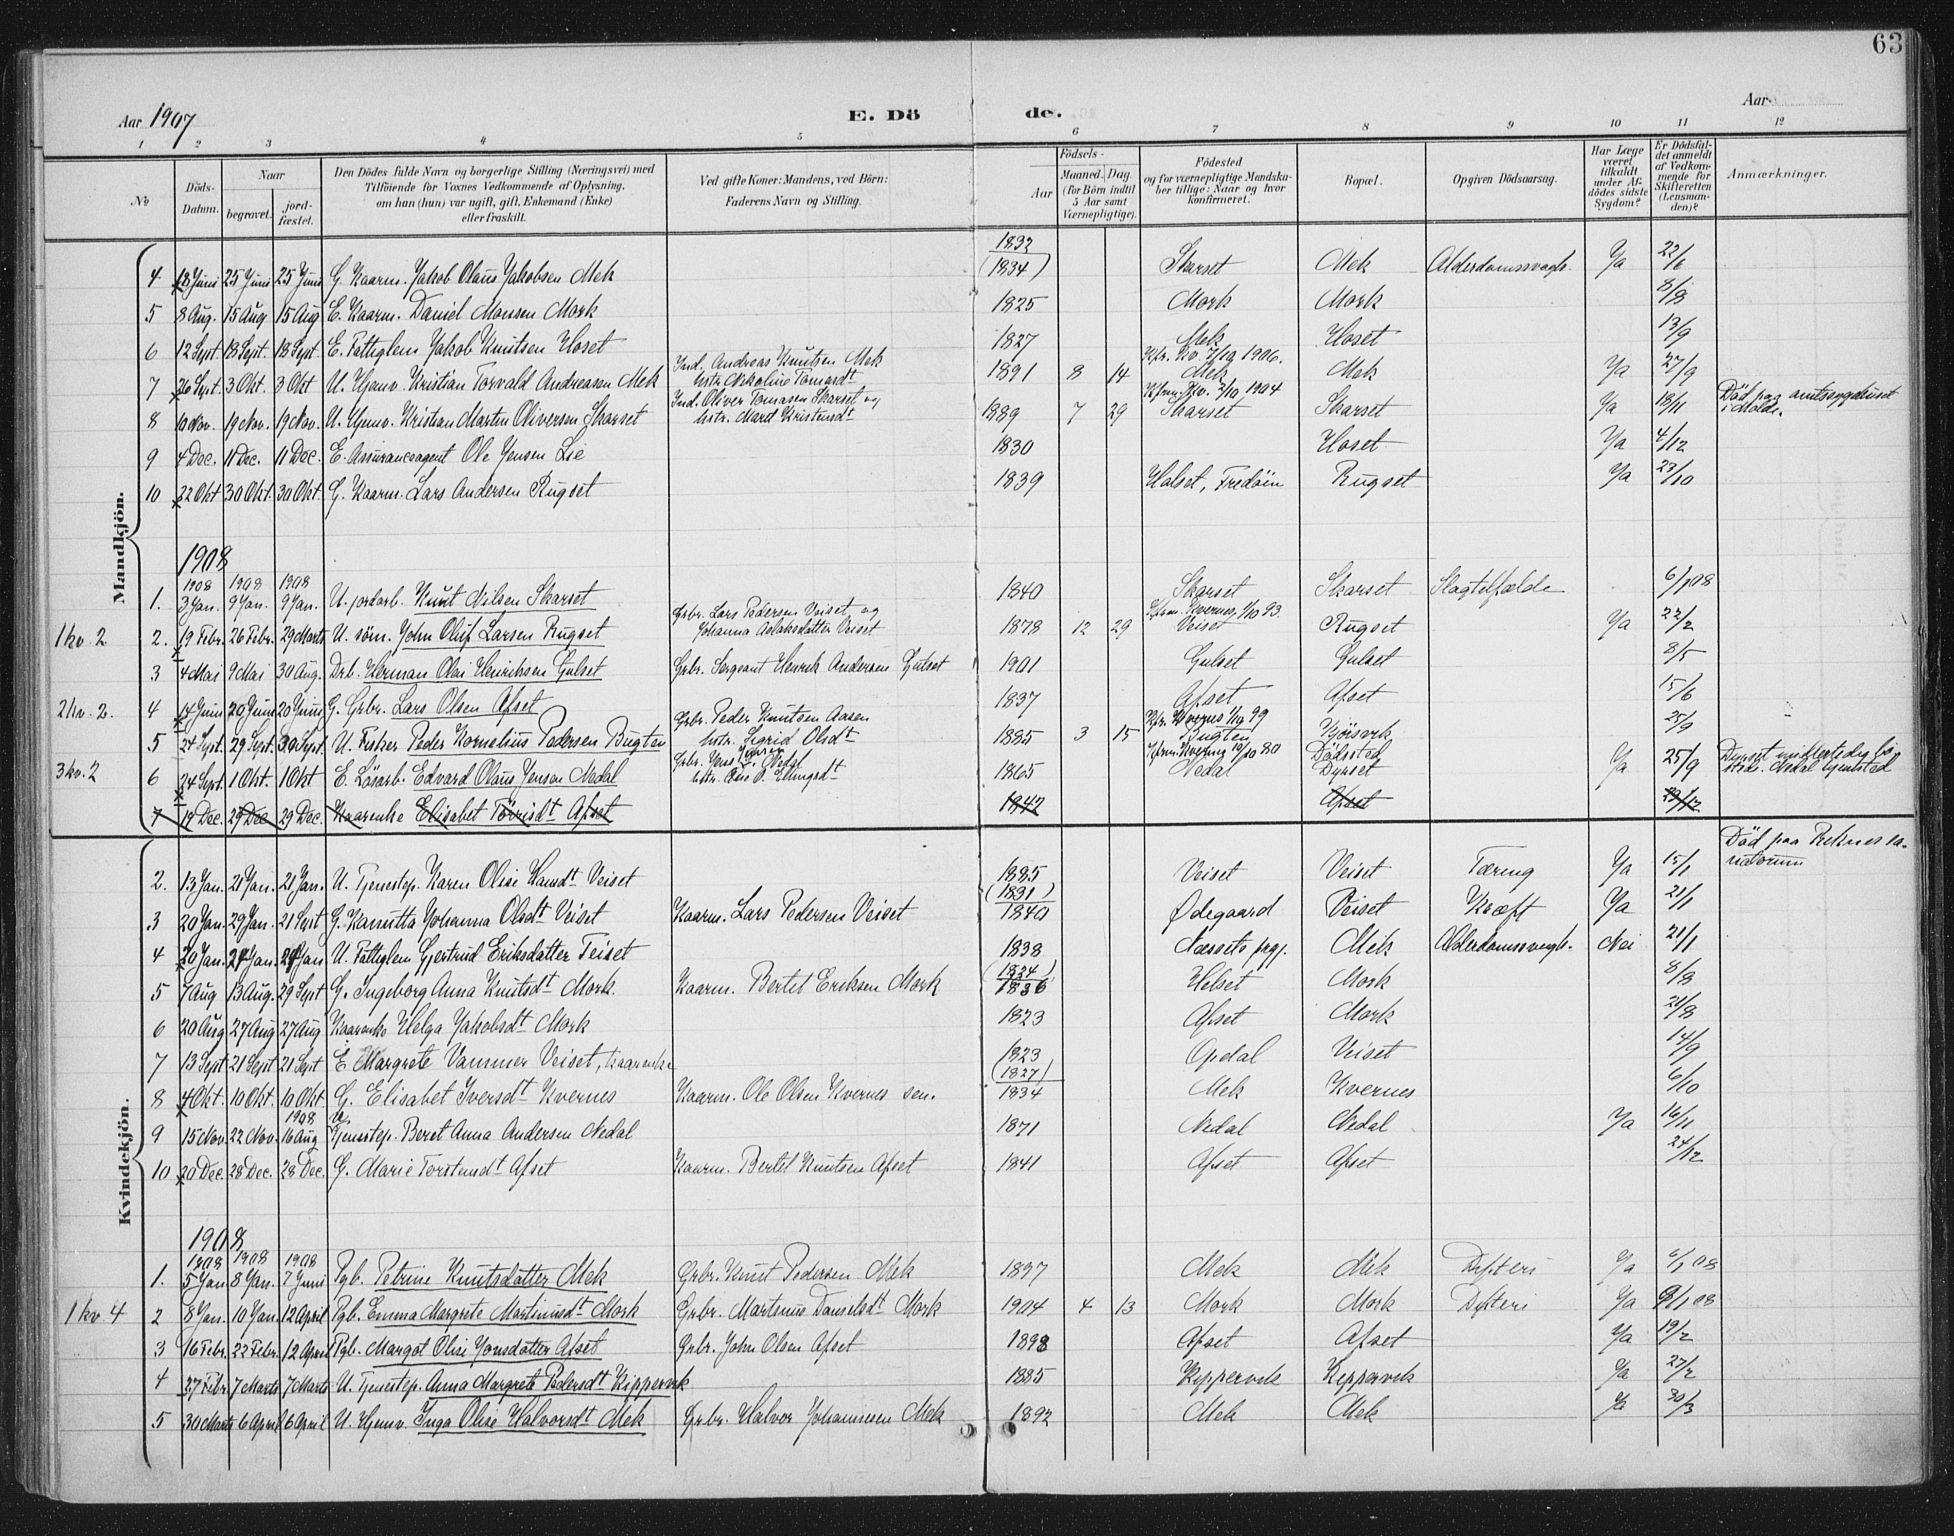 63
Aar 1907
E. Dö de.
Aar
1 2 3 4 5 6 7 8 9 10 11 12
No
Döds-Datum.
Naar
begravet.
jord-fæstet.
Den Dödes fulde Navn og borgerlige Stilling (Næringsvei) med
Tilföiende for Voxnes Vedkommende af Oplysning,
om han (hun) var ugift, gift, Enkemand (Enke)
eller fraskilt.
Ved gifte Koner: Mandens, ved Börn:
Faderens Navn og Stilling.
Födsels-
Aar
Maaned. Dag.
(for Börn indtil
5 Aar samt
Værnepligtige).
Födested
og for værnepligtige Mandska-
ber tillige: Naar og hvor
konfirmeret.
Bopæl.
Opgiven Dödsaarsag.
Har Læge
været
tilkaldt
under Af-
dödes sidste
Sygdom?
Er Dödsfal-
det anmeldt
af Vedkom-
mende for
Skifteretten
(Lensman-
den)?
Anmærkninger.
Mandkjön.
4 18 Juni 25 Juni 25 Juni G. Kaarm. Jakob Olaus Jakobsen Mek 1832 (1834) Skarset Mek Alderdomssvagh. Ja 22/6
5 8 Aug. 15 Aug 15 Aug E. Kaarm. Daniel Monsen Mork 1825 Mork Mork 8/8
6 12 Sept 18 Sept. 18 Sept. E. Fattiglem Jakob Knutsen Hoset 1827 Mek Hoset 13/9
7 26 Sept 3 Okt. 3 Okt U. Hjemv. Kristian Torvald Andreasen Mek Ind. Andreas Knutsen Mek hstr. Nekoline Tomasdt 1891 8 14 Kfr. Kv. 7/10 1906. Mek Mek Ja 27/9
8 10 Nov. 19 Nov. 19 Nov. U. Hjemv. Kristian Martin Oliversen Skarset Ind. Oliver Tomasen Skarset og hstr. Marit Kristensdt 1889 7 29 Kfrm. Kv. 2/10 1904 Skarset Skarset Ja 18/11 Död paa amtssygehuset i Molde.
9 4 Dec. 11 Dec. 11 Dec. E. Assuranceagent Ole Jensen Lie 1830 Hoset Ja 4/12
10 22 Okt 30 Okt. 30 Okt. G. Kaarm. Lars Andersen Rugset 1839 Holset, Fredöen Rugset Ja 23/10
1908
1908 1908 1908
1. 3 Jan. 9 Jan. 9 Jan. U. jordarb. Knut Nilsen Skarset 1840 Skarset Skarset Slagtilfælde 6/1 08
1 kv 2 2. 19 Febr. 26 Febr. 29 Marts U. söm. John Oluf Larsen Rugset Grbr. Lars Pedersen Veiset og Johanna Aslaksdatter Veiset 1878 12 29 Kfrm. Kvernes 1/10 93. Veiset Rugset Ja 22/2
3 4 Mai 9 Mai 30 Aug. Drb. Herman Olai Henriksen Gulset Grbr. Sergeant Henrik Andersen Gulset 1901 Gulset Gulset 8/5
2 kv. 2. 4 14 Juni 20 Juni 20 Juni G. Grbr. Lars Olsen Afset 1837 Afset Afset 15/6
5 24 Sept. 29 Sept. 30 Sept. U. Fisker Peder Kornelius Pedersen Bugten Grbr. Peder Knutsen Aasen hstr. Sigrid Olsdt 1885 3 15 Kfr. Kvernes 1/10 99 Bugten 25/9
3 kv. 2 6 24 Sept. 1 Okt. 1 Okt E. Lösarb. Edvard Olaus Jensen Nedal Grbr. Jens Nedal 1865 Kfrm. Kvernes 10/10 80 Nedal Dödssted Dyrset Ja 25/9
7 19 Dec. 29 Dec 29 Dec. Kaarenke Elisabet Törrisdt Afset 1842 Afset 23/12
Kvindekjön.
2. 13 Jan. 21 Jan. 21 Jan. U. Tjenestep. Karen Olise Hansdt Veiset 1885 Veiset Veiset Tæring Ja 15/1 Död paa Reknes sanatorium
3 20 Jan. 29 Jan. 21 Sept G. Kanutta Johanna Olsdt Veiset Kaarm. Lars Pedersen Veiset (1831) 1840 Ødegaard Veiset Kræft Ja 21/1
4 20 Jan. 29 Jan. 29 Jan U. Fattiglem Gjertrud Eriksdatter Teiset 1838 Nessets prgj. Mek Alderdomssvagh. Nei 21/1
5 7 Aug 13 Aug. 29 Sept G. Ingeborg Anna Knutsdt Mork. Kaarm. Bertel Eriksen Mork (1824) 1836 Helset Mork 8/8
6 20 Aug 27 Aug 27 Aug Kaarenke Helga Jakobsdt Mork 1823 Afset Mork 21/8
7 13 Sept 21 Sept 21 Sept E. Margrete Vammer Veiset, kaarenke 1823 Opdal Veiset 14/9
8 4 Okt. 10 Okt. 10 Okt. G. Elisabet Iversdt Kvernes Kaarm. Ole Olsen Kvernes sen. (1827) 1834 Mek Kvernes 6/10
9 15 Nov 22 Nov. 1908 16 Aug U Tjenestep. Beret Anna Andersen Nedal 1871 Nedal Nedal Ja 16/11
10 20 Dec. 28 Dec. 28 Dec. G. Marie Torstensdt Afset Kaarm. Bertel Knutsen Afset 1841 Afset Afset 24/12
1908
1908 1908 1908
1. 5 Jan 8 Jan. 7 Juni Pgb. Petrine Knutsdatter Mek Grbr. Knut Pedersen Mek 1897 Mek Mek Difteri Ja 6/1 08
1 kv 4 2 8 Jan. 10 Jan. 12 April Pgb. Emma Margrete Martinusdt Mork Grbr. Martinus Danielsdt Mork 1904 4 13 Mork Mork Difteri Ja 9/1 08
3 16 Febr. 22 Febr. 12 April Pgb. Margot Olise Jonsdatter Afset Grbr. John Olsen Afset 1898 Afset Afset Ja 19/2
4 27 Febr 7 Marts 7 Marts U. Tjenestep. Anna Margrete Pedersdt Kippervik 1885 Kippervik Kippervik Ja 27/2
5 30 Marts 6 April 6 April U. Hjemv. Inga Olise Halvorsdt Mek Grbr. Halvor Johannesen Mek 1892 Mek Mek Ja 30/3